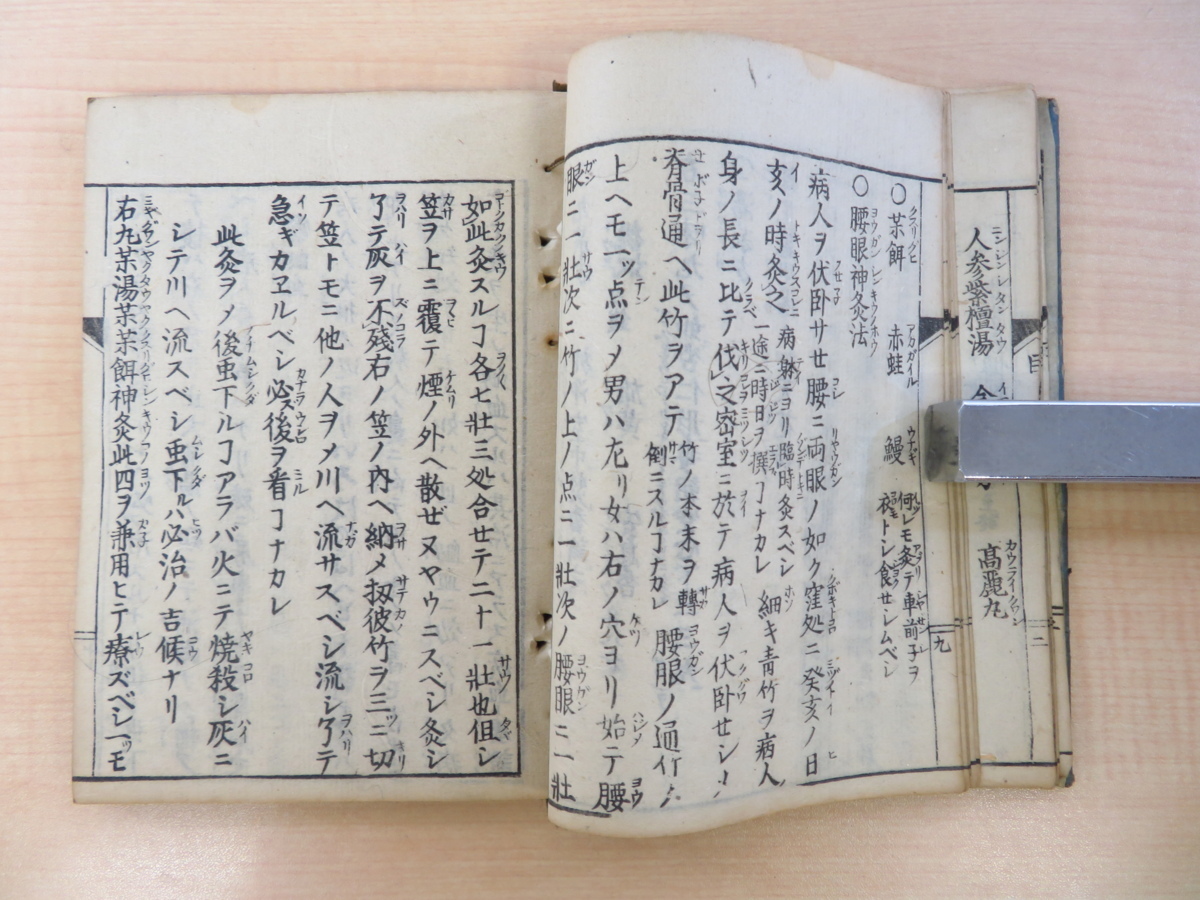 人参紫檀湯
高麗丸
目
二
九
○菜餌 赤蛙 鰻 何レモ炙テ車前子ヲ
衣トシ食セシムベシ
○腰眼神灸法
病人ヲ伏卧サセ腰ニ両眼ノ如ク窪処ニ癸亥ノ日
亥ノ時灸之 病躰ニヨリ臨時灸スベシ 細キ青竹ヲ病人
一途ニ時日ヲ撰コナカレ
身ノ長ニ比テ伐之密室ニ於テ病人ヲ伏卧セシ
脊骨通ヘ此竹ヲアテ 竹ノ本末ヲ轉 腰眼ノ通
倒ニスルコナカレ
上ヘモ一ッ点ヲメ男ハ左リ女ハ右ノ穴ヨリ始テ腰
眼ニ一壯次ニ竹ノ上ノ点ニ一壯次ノ腰眼ニ一壯
如此灸スルコ各七壯三処合セテ二十一壯也但シ
笠ヲ上ニ覆テ煙ノ外ヘ散ゼヌヤウニスベシ灸シ
了テ灰ヲ不残右ノ笠ノ内ヘ納メ扨彼竹ヲ三ニ切
テ笠トモニ他ノ人ヲメ川ヘ流サスベシ流シ了テ
急ギカヱルベシ必ズ後ヲ看コナカレ
此灸ヲメ後虫下ルコアラバ火ニテ焼殺シ灰ニ
シテ川ヘ流スベシ虫下ルハ必治ノ吉候ナリ
右九菜湯菜菜餌神灸此四ヲ兼用ヒテ療ズベシ一モ